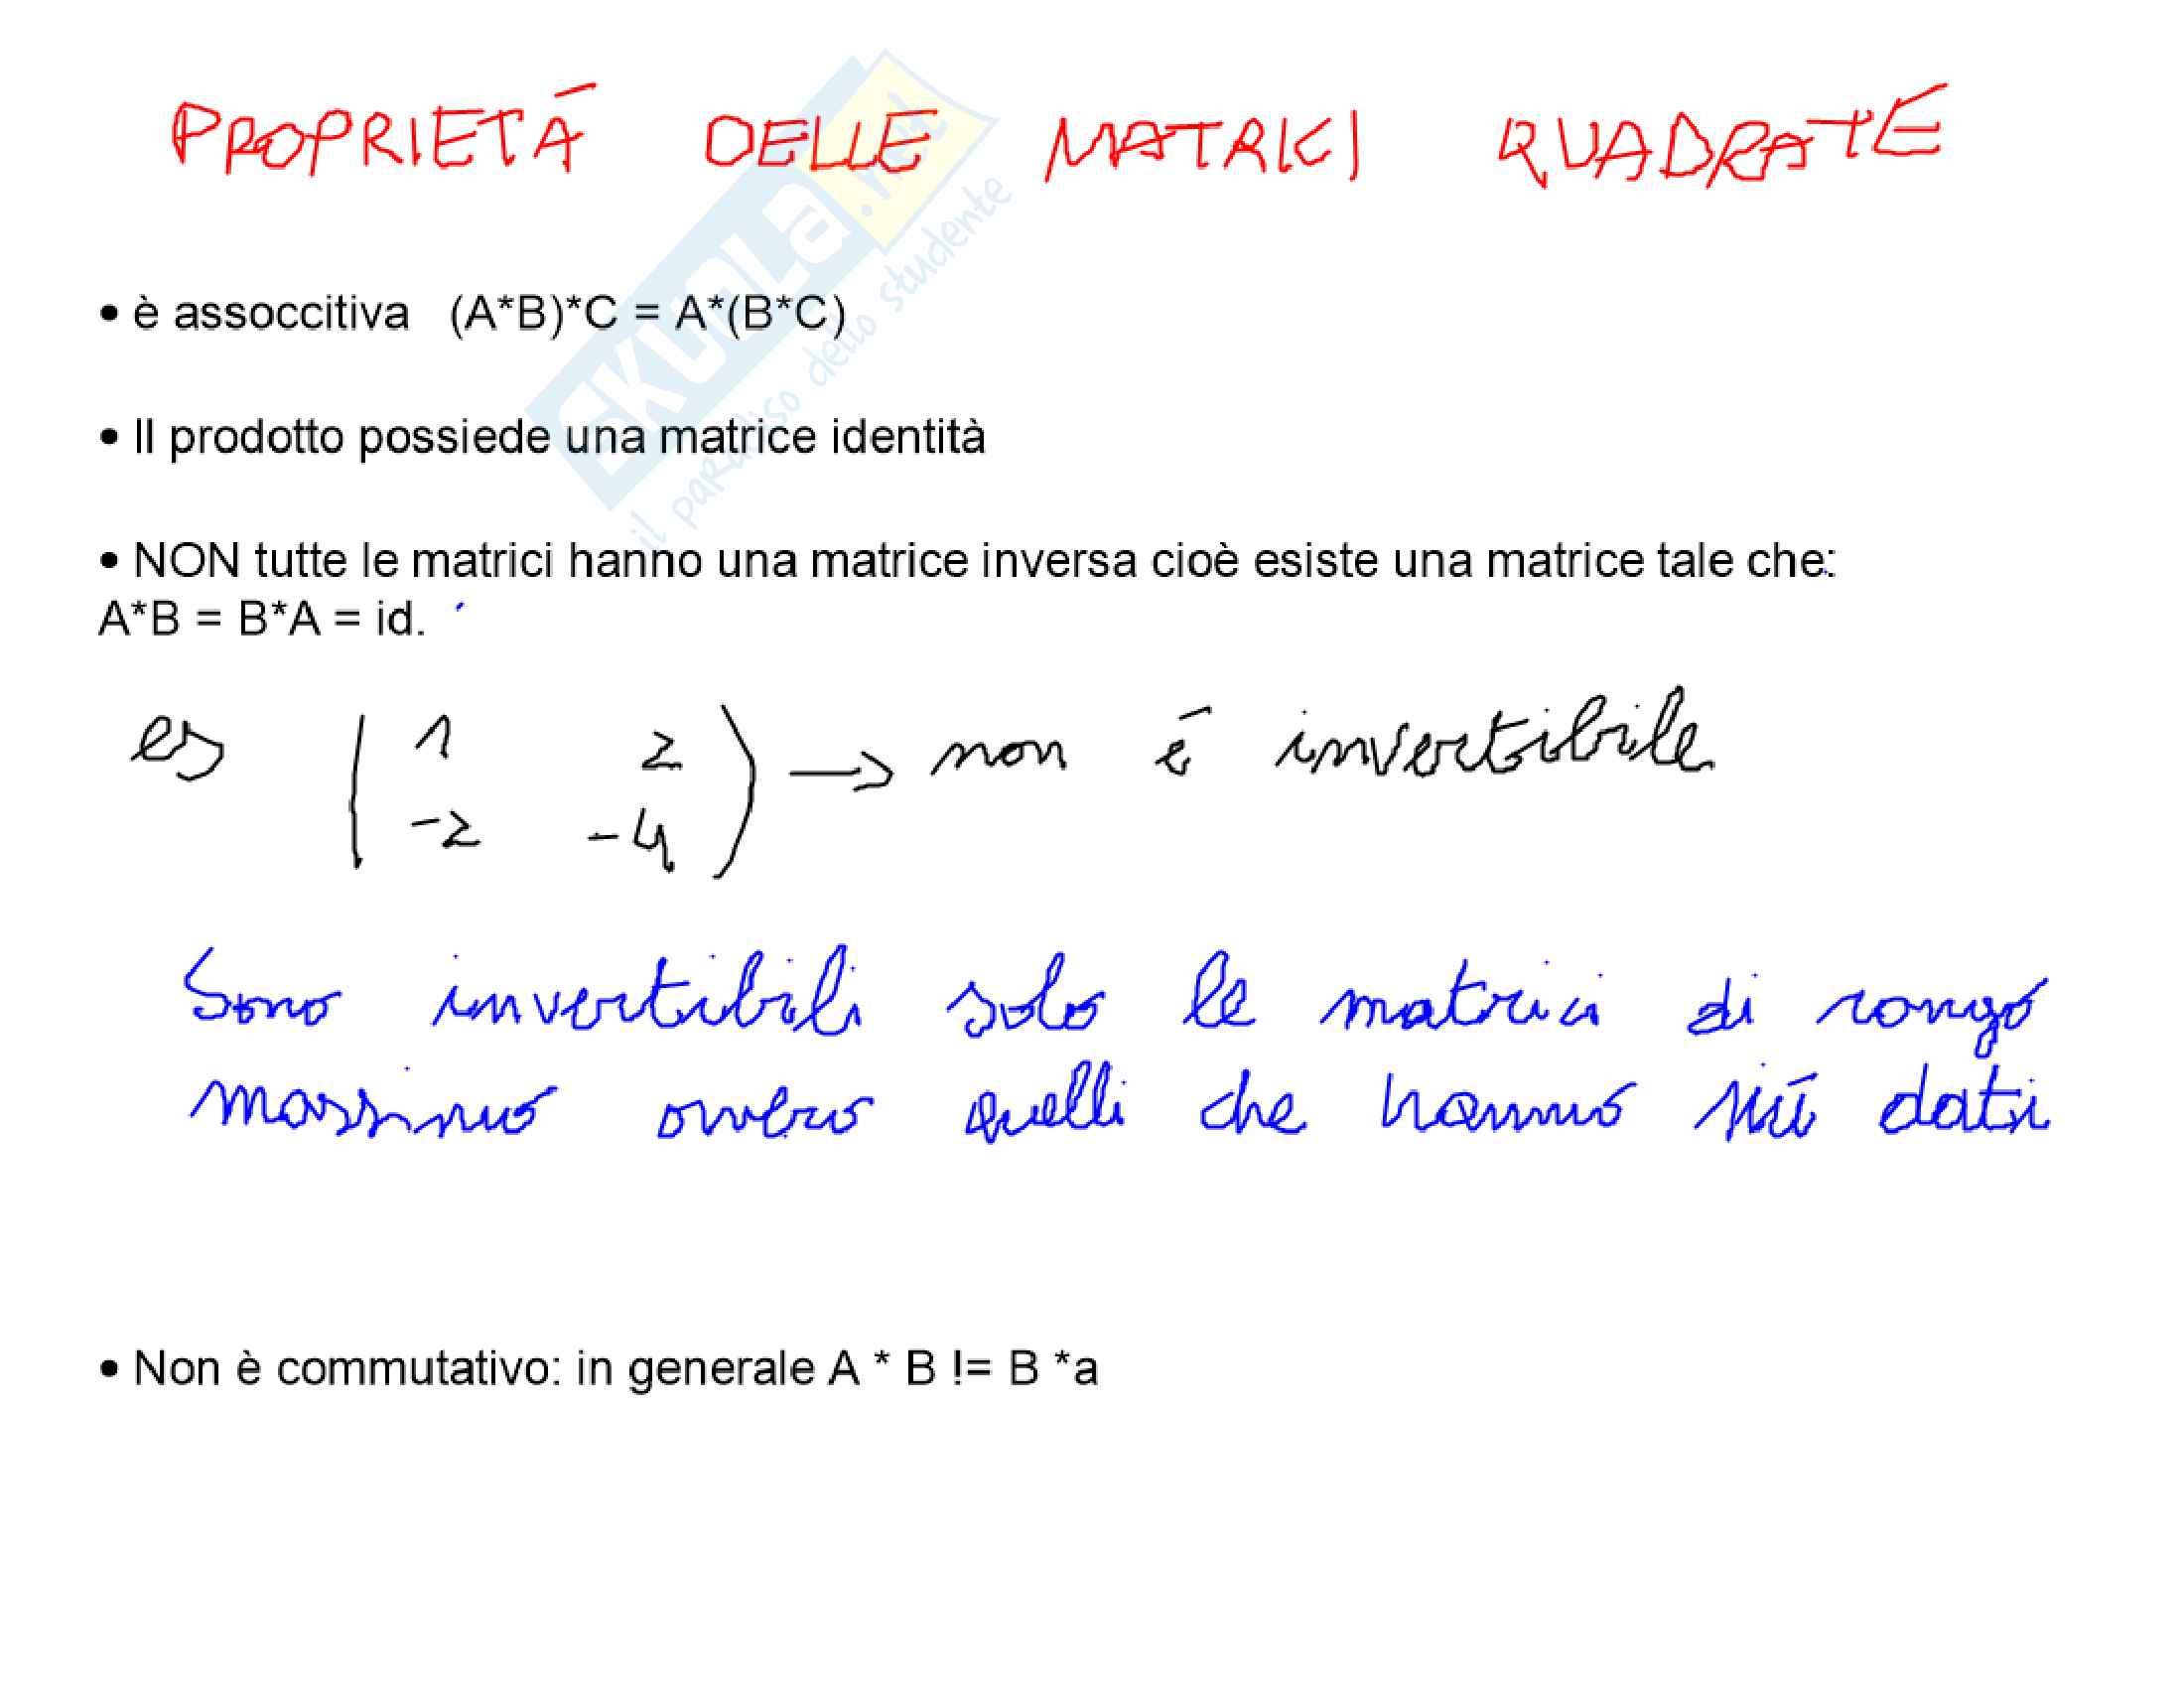 PROPRIETÀ DELLE MATRICI QUADRATE
SKUOLA.net
il paradiso dello studente
• è assoccitiva (A*B)*C = A*(B*C)
• Il prodotto possiede una matrice identità
• NON tutte le matrici hanno una matrice inversa cioè esiste una matrice tale che:
A*B = B*A = id.
es ( 1 2 ) → non è invertibile
-2 -4
Sono invertibili solo le matrici di rango
massimo ovvero quelli che hanno più dati
• Non è commutativo: in generale A * B != B *a